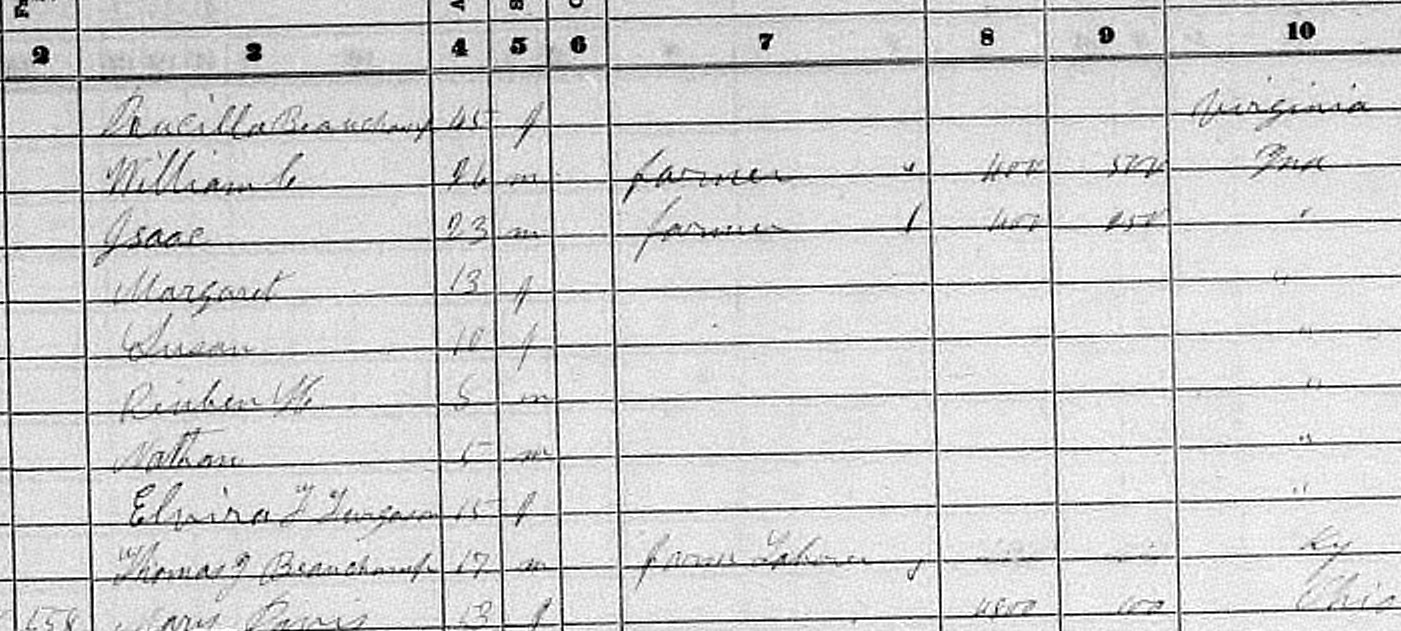 2 3 4 5 6 7 8 9 10
Beauchamp 45 f Virginia
William C 26 m farmer 400 Ind
Isaac 23 m farmer 400 "
Margaret 13 f "
Susan 10 f "
Reuben m "
Nathan 5 m "
Elvira F Furgason 15 f "
Thomas J Beauchamp 17 m farm Laborer Ky
Mary Davis f Ohio